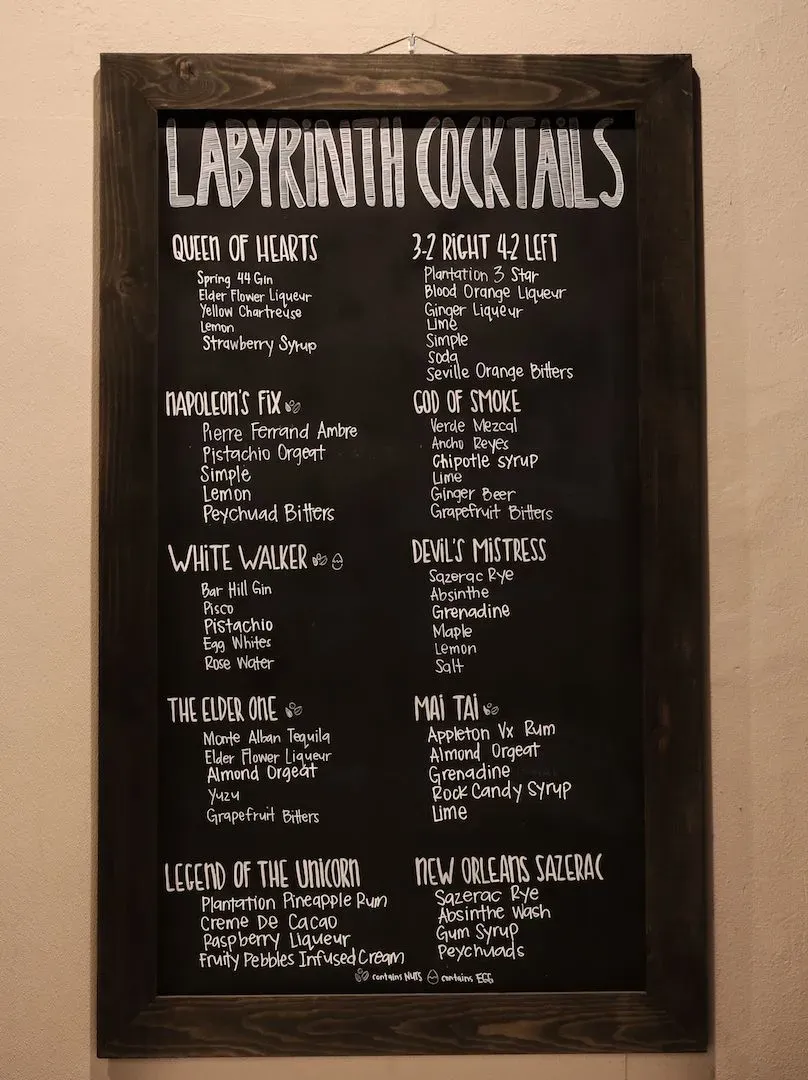 LABYRINTH COCKTAILS
QUEEN OF HEARTS
Spring 44 Gin
Elder Flower Liqueur
Yellow Chartreuse
Lemon
Strawberry Syrup
NAPOLEON'S FIX
Pierre Ferrand Ambre
Pistachio Orgeat
Simple
Lemon
Peychuad Bitters
WHITE WALKER
Bar Hill Gin
Pisco
Pistachio
Egg Whites
Rose Water
THE ELDER ONE
Monte Alban Tequila
Elder Flower Liqueur
Almond Orgeat
Yuzu
Grapefruit Bitters
LEGEND OF THE UNICORN
Plantation Pineapple Rum
Creme De Cacao
Raspberry Liqueur
Fruity Pebbles Infused Cream
3-2 RIGHT 4-2 LEFT
Plantation 3 Star
Blood Orange Liqueur
Ginger Liqueur
Lime
Simple
Soda
Seville Orange Bitters
GOD OF SMOKE
Verde Mezcal
Ancho Reyes
Chipotle syrup
Lime
Ginger Beer
Grapefruit Bitters
DEVIL'S MISTRESS
Sazerac Rye
Absinthe
Grenadine
Maple
Lemon
Salt
MAI TAI
Appleton Vx Rum
Almond Orgeat
Grenadine
Rock Candy Syrup
Lime
NEW ORLEANS SAZERAC
Sazerac Rye
Absinthe Wash
Gum Syrup
Peychuads
contains NUTS contains EGG